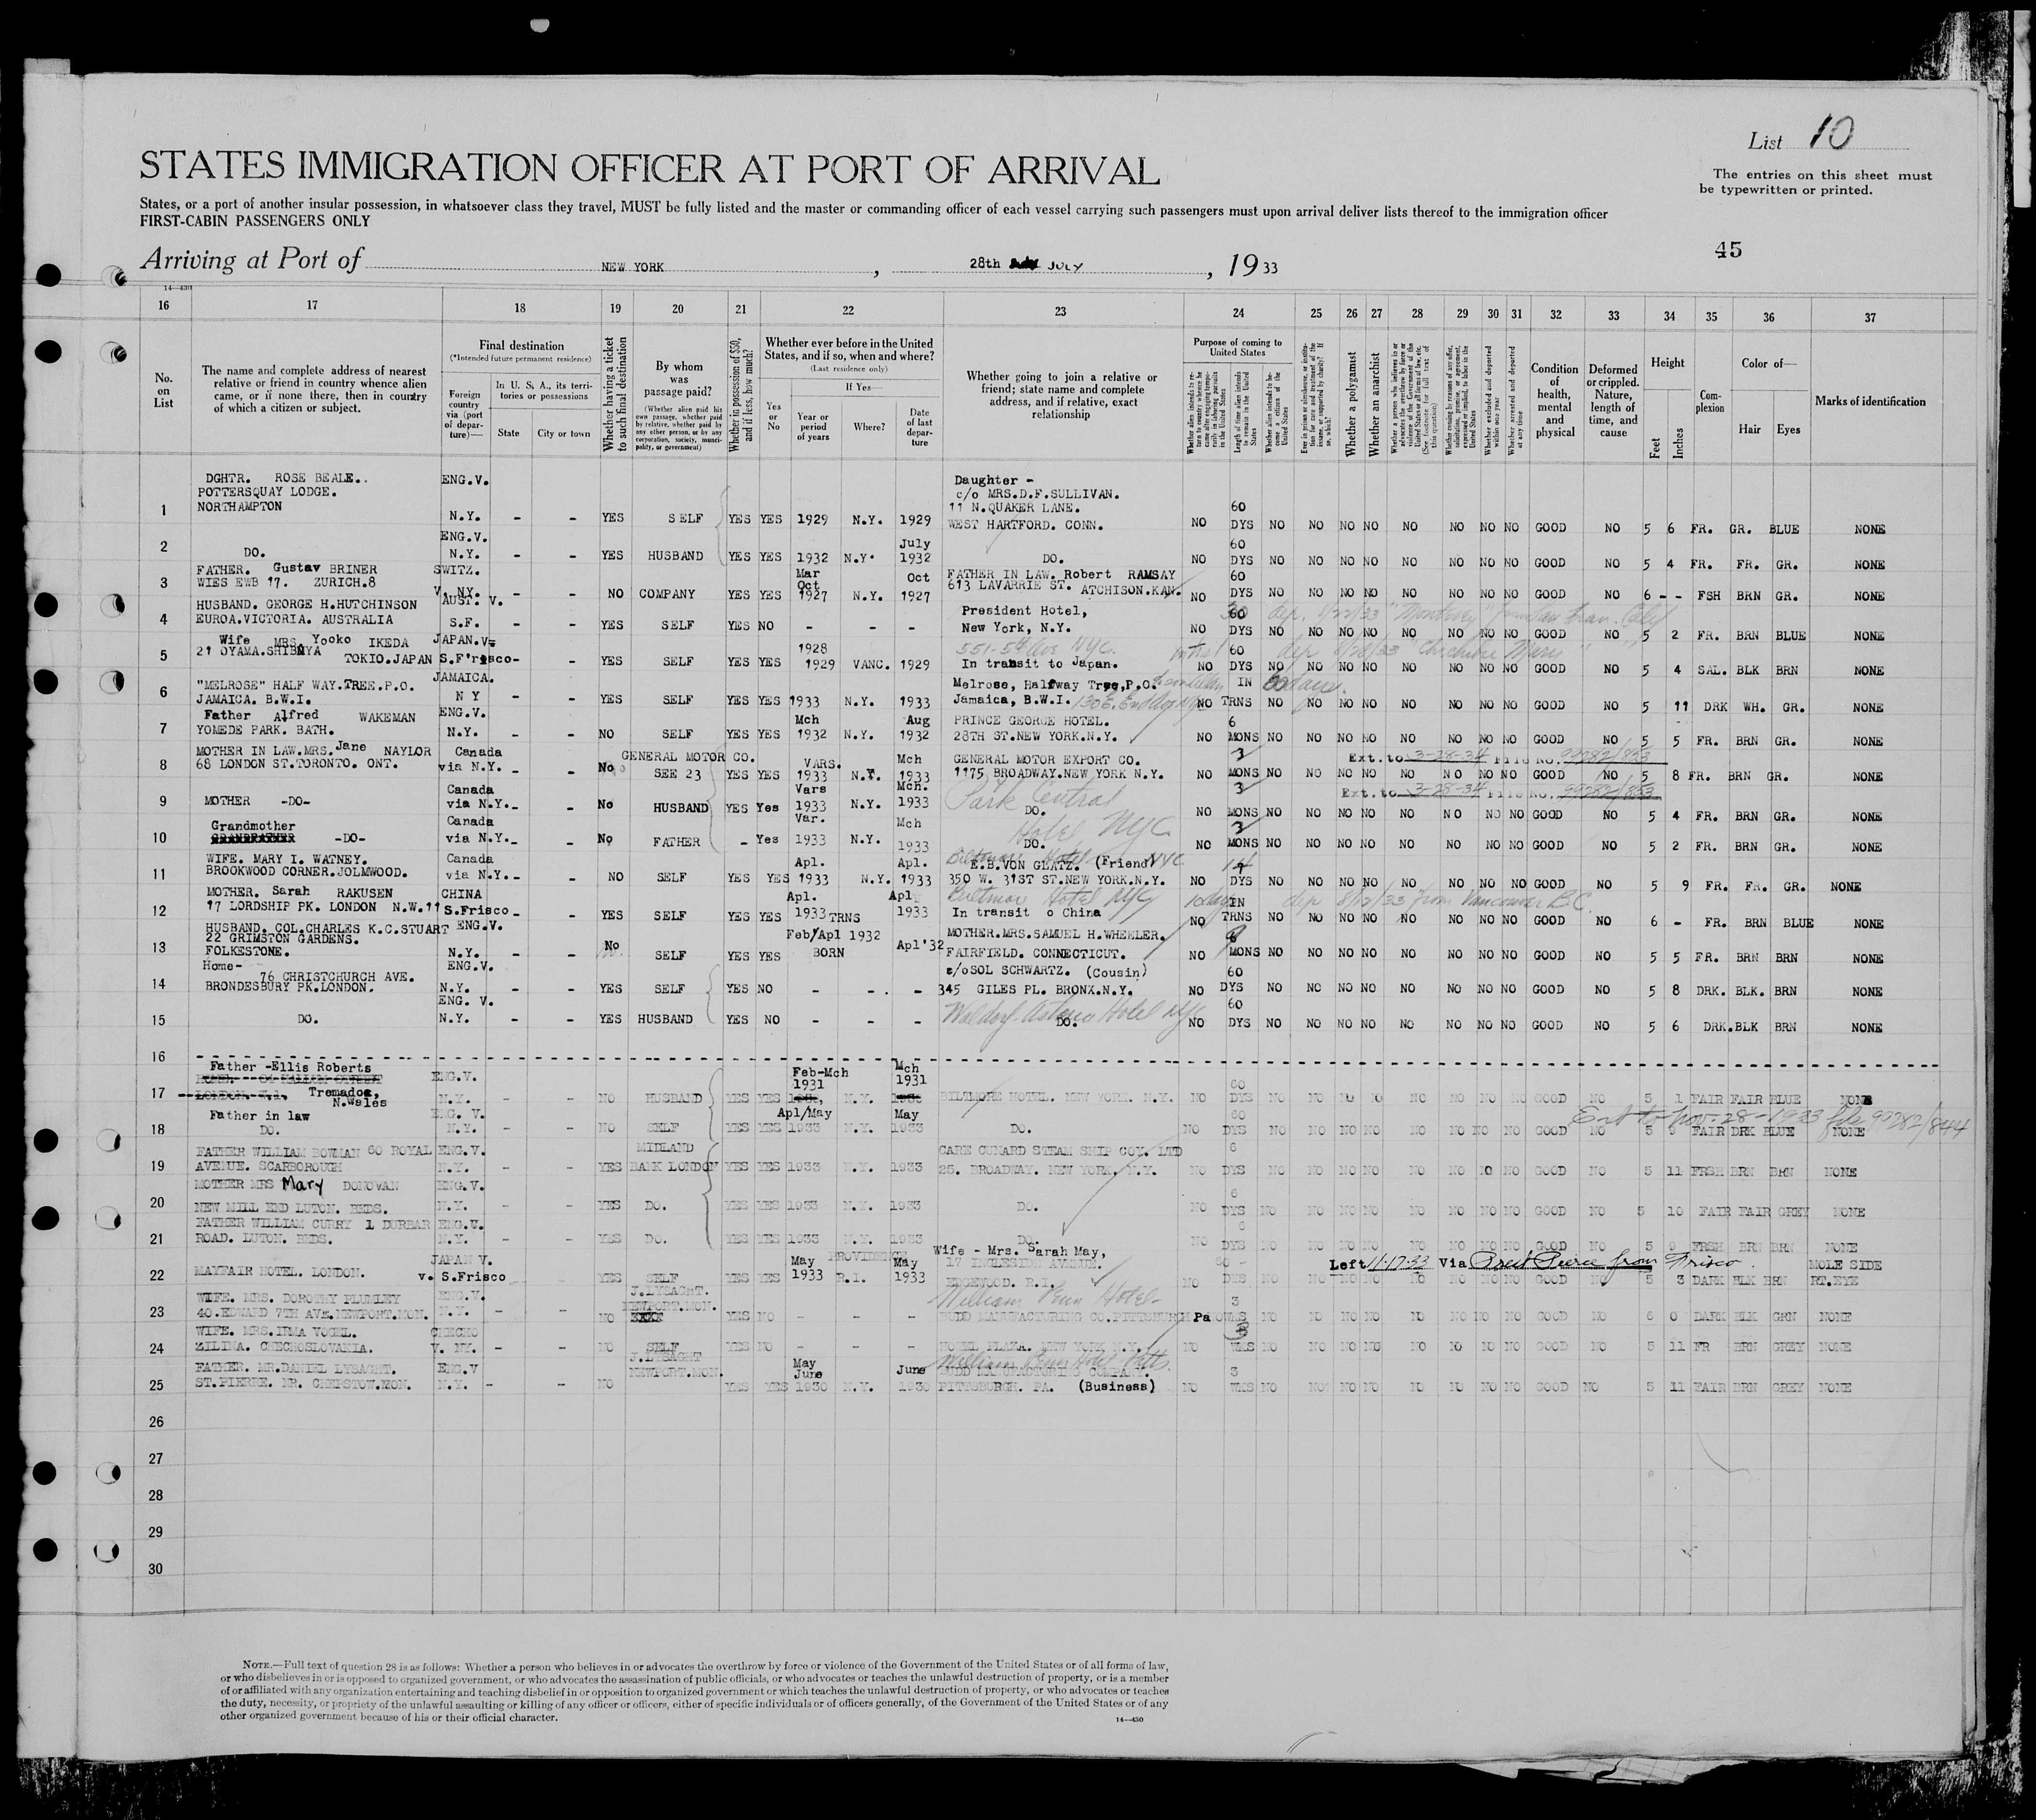 List 10
The entries on this sheet must
be typewritten or printed.
STATES IMMIGRATION OFFICER AT PORT OF ARRIVAL
States, or a port of another insular possession, in whatsoever class they travel, MUST be fully listed and the master or commanding officer of each vessel carrying such passengers must upon arrival deliver lists thereof to the immigration officer
FIRST-CABIN PASSENGERS ONLY
45
Arriving at Port of NEW YORK, 28th JULY, 19 33
14—430
16 17 18 19 20 21 22 23 24 25 26 27 28 29 30 31 32 33 34 35 36 37
No. on List
The name and complete address of nearest relative or friend in country whence alien came, or if none there, then in country of which a citizen or subject.
Final destination
(*Intended future permanent residence)
Foreign country via (port of departure)—
In U. S. A., its territories or possessions
State
City or town
Whether having a ticket to such final destination
By whom was passage paid?
(Whether alien paid his own passage, whether paid by relative, whether paid by any other person, or by any corporation, society, municipality, or government)
Whether in possession of $50, and if less, how much?
Whether ever before in the United States, and if so, when and where?
(Last residence only)
Yes or No
If Yes—
Year or period of years
Where?
Date of last departure
Whether going to join a relative or friend; state name and complete address, and if relative, exact relationship
Purpose of coming to United States
Whether alien intends to return to country whence he came after engaging temporarily in laboring pursuits in the United States
Length of time alien intends to remain in the United States
Whether alien intends to become a citizen of the United States
Ever in prison or almshouse, or institution for care and treatment of the insane, or supported by charity? If so, which?
Whether a polygamist
Whether an anarchist
Whether a person who believes in or advocates the overthrow by force or violence of the Government of the United States or all forms of law, etc. (See footnote for full text of this question)
Whether coming by reasons of any offer, solicitation, promise, or agreement, expressed or implied, to labor in the United States
Whether excluded and deported within one year
Whether arrested and deported at any time
Condition of health, mental and physical
Deformed or crippled. Nature, length of time, and cause
Height
Feet
Inches
Complexion
Color of—
Hair
Eyes
Marks of identification
DGHTR. ROSE BEALE.. ENG.V. Daughter -
POTTERSQUAY LODGE. c/o MRS.D.F.SULLIVAN.
NORTHAMPTON 11 N.QUAKER LANE. 60
1 N.Y. - - YES SELF YES YES 1929 N.Y. 1929 WEST HARTFORD. CONN. NO DYS NO NO NO NO NO NO NO NO GOOD NO 5 6 FR. GR. BLUE NONE
ENG.V. July 60
2 DO. N.Y. - - YES HUSBAND YES YES 1932 N.Y. 1932 DO. NO DYS NO NO NO NO NO NO NO NO GOOD NO 5 4 FR. FR. GR. NONE
FATHER. Gustav BRINER SWITZ. Mar Oct Oct FATHER IN LAW. Robert RAMSAY 60
3 WIES EWB 17. ZURICH.8 V. NY. - - NO COMPANY YES YES 1927 N.Y. 1927 613 LAVARRIE ST. ATCHISON.KAN. NO DYS NO NO NO NO NO NO NO NO GOOD NO 6 - - FSH BRN GR. NONE
HUSBAND. GEORGE H.HUTCHINSON AUST. V. President Hotel, 60 dep. 8/22/33 "Monterey" from San Fran. Calif
4 EUROA.VICTORIA. AUSTRALIA S.F. - YES SELF YES NO - - - New York, N.Y. NO DYS NO NO NO NO NO NO NO NO GOOD NO 5 2 FR. BRN BLUE NONE
Wife MRS. Yooko IKEDA JAPAN.V. 1928 551-5th Ave NYC. 60 dep 8/28/33 "Chichibu Maru"
5 21 OYAMA.SHIBUYA TOKIO.JAPAN S.F'risco - - YES SELF YES YES 1929 VANC. 1929 In transit to Japan. NO DYS NO NO NO NO NO NO NO NO GOOD NO 5 4 SAL. BLK BROWN NONE
JAMAICA.
"MELROSE" HALF WAY.TREE.P.O. Melrose, Halfway Tree,P.O. IN 60 days.
6 JAMAICA. B.W.I. N Y - YES SELF YES YES 1933 N.Y. 1933 Jamaica, B.W.I. NO TRNS NO NO NO NO NO NO NO NO GOOD NO 5 11 DRK WH. GR. NONE
Father Alfred WAKEMAN ENG.V. Mch Aug PRINCE GEORGE HOTEL. 6
7 YOMEDE PARK. BATH. N.Y. - - NO SELF YES YES 1932 N.Y. 1932 28TH ST.NEW YORK.N.Y. NO MONS NO NO NO NO NO NO NO NO GOOD NO 5 5 FR. BRN GR. NONE
MOTHER IN LAW.MRS.Jane NAYLOR Canada GENERAL MOTOR CO. VARS. Mch GENERAL MOTOR EXPORT CO. 3 Ext.to 3-28-34 File No. 99282/853
8 68 LONDON ST.TORONTO. ONT. via N.Y. - - No SEE 23 YES YES 1933 N.Y. 1933 1175 BROADWAY.NEW YORK N.Y. NO MONS NO NO NO NO NO NO NO NO GOOD NO 5 8 FR. BRN GR. NONE
Canada Vars Mch. Park Central 3 Ext.to 3-28-34 File No. 99282/853
9 MOTHER -DO- via N.Y. - - No HUSBAND YES Yes 1933 N.Y. 1933 DO. NO MONS NO NO NO NO NO NO NO NO GOOD NO 5 4 FR. BRN GR. NONE
Grandmother Canada Var. Mch Hotel NYC 3
10 GRANDFATHER -DO- via N.Y. - - No FATHER - Yes 1933 N.Y. 1933 DO. NO MONS NO NO NO NO NO NO NO NO GOOD NO 5 2 FR. BRN GR. NONE
WIFE. MARY I. WATNEY. Canada Apl. Apl. Biltmore Hotel NYC E.B.VON GLATZ. (Friend) 14
11 BROOKWOOD CORNER.JOLMWOOD. via N.Y. - - NO SELF YES YES 1933 N.Y. 1933 350 W. 31ST ST.NEW YORK.N.Y. NO DYS NO NO NO NO NO NO NO NO GOOD NO 5 9 FR. FR. GR. NONE
MOTHER. Sarah RAKUSEN CHINA Apl. Apl Biltmore Hotel NYC 10 days IN dep 8/12/33 from Vancouver B.C.
12 17 LORDSHIP PK. LONDON N.W.11 S.Frisco - - YES SELF YES YES 1933 TRNS 1933 In transit o China NO TRNS NO NO NO NO NO NO NO NO GOOD NO 6 - FR. BRN BLUE NONE
HUSBAND. COL.CHARLES K.C.STUART ENG.V. Feb/Apl 1932 MOTHER.MRS.SAMUEL H.WHEELER.
22 GRIMSTON GARDENS. No Apl'32
13 FOLKESTONE. N.Y. - - SELF YES YES BORN FAIRFIELD. CONNECTICUT. NO MONS NO NO NO NO NO NO NO NO GOOD NO 5 5 FR. BRN BRN NONE
Home- ENG.V. c/o SOL SCHWARTZ. (Cousin) 60
76 CHRISTCHURCH AVE.
14 BRONDESBURY PK.LONDON. N.Y. - - YES SELF YES NO - - - 345 GILES PL. BRONX.N.Y. NO DYS NO NO NO NO NO NO NO NO GOOD NO 5 8 DRK. BLK. BRN NONE
ENG. V. Waldorf-Astoria Hotel NYC 60
15 DO. N.Y. - - YES HUSBAND YES NO - - - DO. NO DYS NO NO NO NO NO NO NO NO GOOD NO 5 6 DRK. BLK BRN NONE
16
Father -Ellis Roberts ENG.V. Feb-Mch 1931 Mch 1931 60
17 Tremadoc, N.Wales N.Y. - - NO HUSBAND YES YES N.Y. BILTMORE HOTEL. NEW YORK. N.Y. NO DYS NO NO NO NO NO NO NO NO GOOD NO 5 1 FAIR FAIR BLUE NONE
Father in law ENG. V. Apl/May May 60 Ext to Nov-28-1933 file 99282/844
18 DO. N.Y. - - NO SELF YES YES 1933 N.Y. 1933 DO. NO DYS NO NO NO NO NO NO NO NO GOOD NO 5 9 FAIR DRK BLUE NONE
FATHER WILLIAM BOWMAN 60 ROYAL ENG.V. MIDLAND CARE CUNARD STEAM SHIP COY. LTD 6
19 AVENUE. SCARBOROUGH N.Y. - - YES BANK LONDON YES YES 1933 N.Y. 1933 25. BROADWAY. NEW YORK. N.Y. NO DYS NO NO NO NO NO NO NO NO GOOD NO 5 11 FRSH BRN BRN NONE
MOTHER MRS Mary DONOVAN ENG.V. 6
20 NEW MILL END LUTON. BEDS. N.Y. - - YES DO. YES YES 1933 N.Y. 1933 DO. NO DYS NO NO NO NO NO NO NO NO GOOD NO 5 10 FAIR FAIR GREY NONE
FATHER WILLIAM CURRY 1 DURBAR ENG.V. 6
21 ROAD. LUTON. BEDS. N.Y. - - YES DO. YES YES 1933 N.Y. 1933 DO. NO DYS NO NO NO NO NO NO NO NO GOOD NO 5 9 FRSH BRN BRN NONE
JAPAN V. May PROVIDENCE May Wife - Mrs. Sarah May, 17 INGLESIDE AVENUE. 60 - Left 11-17-33 Via Pres Pierce from Frisco. MOLE SIDE
22 MAYFAIR HOTEL. LONDON. v. S.Frisco YES SELF YES YES 1933 R.I. 1933 EDGEWOOD. R.I. NO DYS NO NO NO NO NO NO NO NO GOOD NO 5 3 DARK BLK BRN RT.EYE
WIFE. MRS. DOROTHY PLUMLEY ENG.V. J.LYSAGHT. NEWPORT.MON. William Penn Hotel- 3
23 40.EDWARD 7TH AVE.NEWPORT.MON. N.Y. - - NO YES NO - - - BUDD MANUFACTURING CO.PITTSBURGH Pa NO WKS NO NO NO NO NO NO NO NO GOOD NO 6 0 DARK BLK GRN NONE
WIFE. MRS.IRMA VOGEL. CZECHO 3
24 ZILINA. CZECHOSLOVAKIA. V. NY. - - NO SELF YES NO - - - HOTEL PLAZA. NEW YORK N.Y. NO WKS NO NO NO NO NO NO NO NO GOOD NO 5 11 FR BRN GREY NONE
FATHER. MR.DANIEL LYSAGHT. ENG.V J.LYSAGHT NEWPORT.MON. May June June William Penn Hotel Pitts. BUDD MANUFACTURING COMPANY. 3
25 ST.PIERRE. NR. CHEPSTOW.MON. N.Y. - - NO YES YES 1930 N.Y. 1930 PITTSBURGH. PA. (Business) NO WKS NO NO NO NO NO NO NO NO GOOD NO 5 11 FAIR BRN GREY NONE
26
27
28
29
30
NOTE.—Full text of question 28 is as follows: Whether a person who believes in or advocates the overthrow by force or violence of the Government of the United States or of all forms of law,
or who disbelieves in or is opposed to organized government, or who advocates the assassination of public officials, or who advocates or teaches the unlawful destruction of property, or is a member
of or affiliated with any organization entertaining and teaching disbelief in or opposition to organized government or which teaches the unlawful destruction of property, or who advocates or teaches
the duty, necessity, or propriety of the unlawful assaulting or killing of any officer or officers, either of specific individuals or of officers generally, of the Government of the United States or of any
other organized government because of his or their official character.
14—430